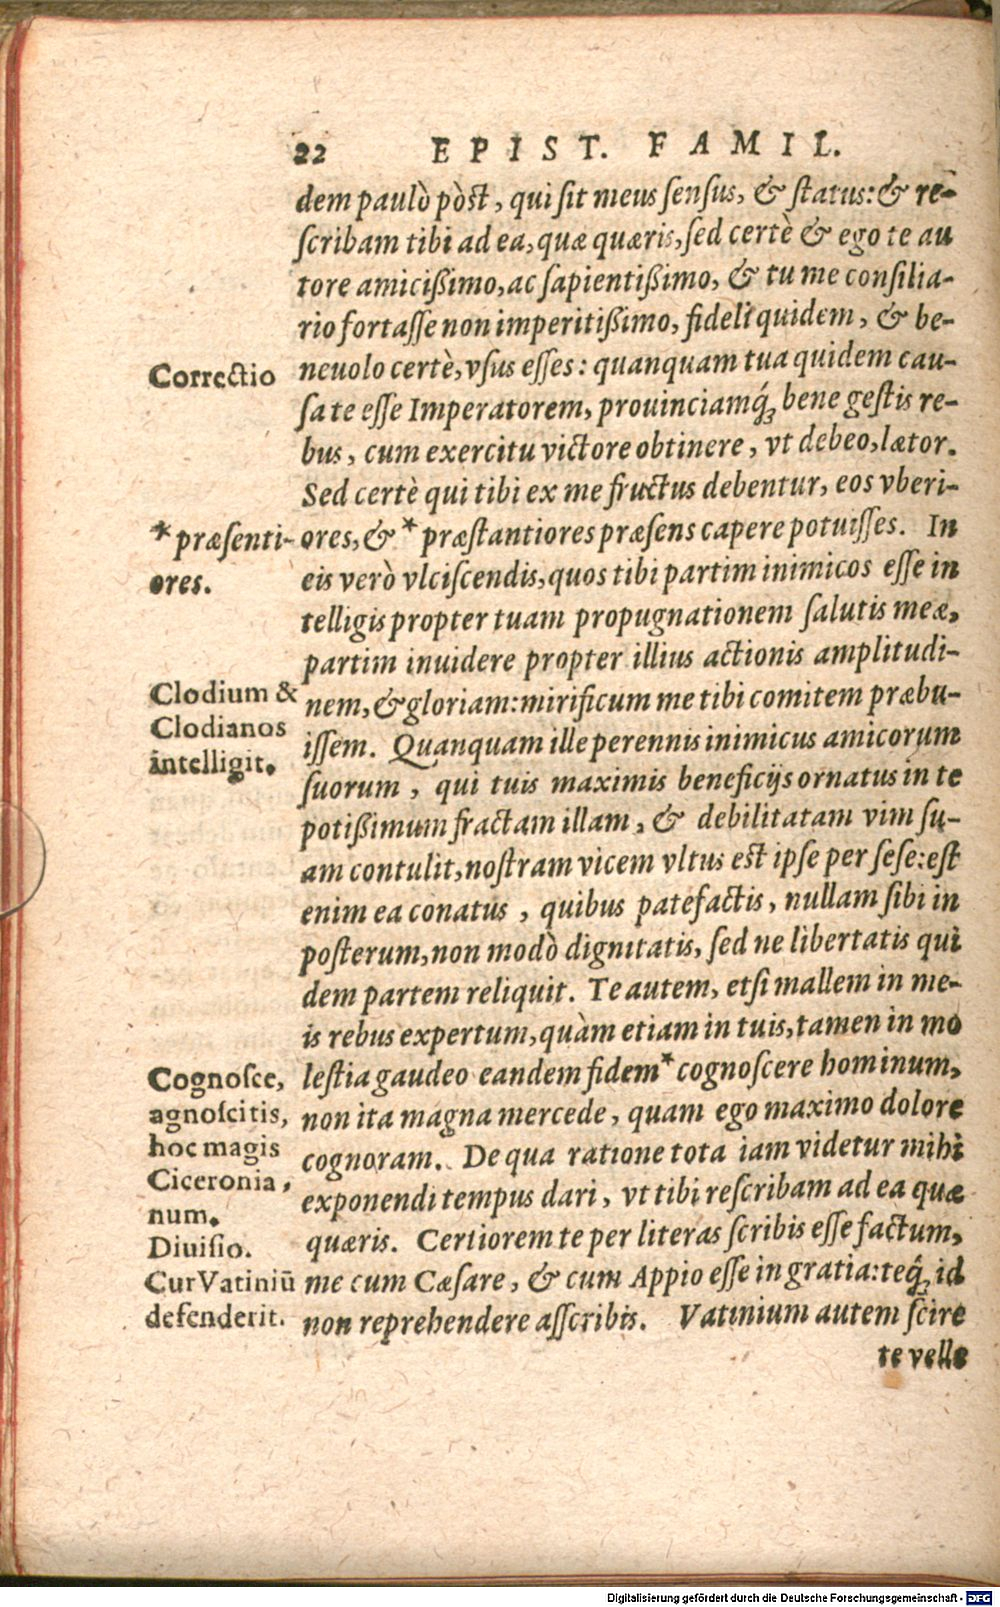 22 EPIST. FAMIL.
dem paulò pòst, qui sit meus sensus, & status:& re-
scribam tibi ad ea, quæ quæris, sed certè & ego te au
tore amicißimo, ac sapientißimo, & tu me consilia-
rio fortasse non imperitißimo, fideli quidem, & be-
Correctio
neuolo certè, vsus esses: quanquam tua quidem cau-
sa te esse Imperatorem, prouinciamq́ꝫ bene gestis re-
bus, cum exercitu victore obtinere, vt debeo, lætor.
Sed certè qui tibi ex me fructus debentur, eos vberi-
* præsenti-
ores.
ores, & * præstantiores præsens capere potuisses. In
eis verò vlciscendis, quos tibi partim inimicos esse in
telligis propter tuam propugnationem salutis meæ,
partim inuidere propter illius actionis amplitudi-
Clodium &
Clodianos
intelligit.
nem, & gloriam: mirificum me tibi comitem præbu-
issem. Quanquam ille perennis inimicus amicorum
suorum, qui tuis maximis beneficijs ornatus in te
potißimum fractam illam, & debilitatam vim su-
am contulit, nostram vicem vltus est ipse per sese: est
enim ea conatus, quibus patefactis, nullam sibi in
posterum, non modò dignitatis, sed ne libertatis qui
dem partem reliquit. Te autem, etsi mallem in me-
is rebus expertum, quàm etiam in tuis, tamen in mo
Cognosce,
agnoscitis,
hoc magis
Ciceronia,
num.
lestia gaudeo eandem fidem * cognoscere hominum,
non ita magna mercede, quam ego maximo dolore
cognoram. De qua ratione tota iam videtur mihi
exponendi tempus dari, vt tibi rescribam ad ea quæ
Diuisio.
quæris. Certiorem te per literas scribis esse factum,
Cur Vatiniū
defenderit.
me cum Cæsare, & cum Appio esse in gratia: teq́ꝫ id
non reprehendere asscribis. Vatinium autem scire
te velle
Digitalisierung gefördert durch die Deutsche Forschungsgemeinschaft - DFG